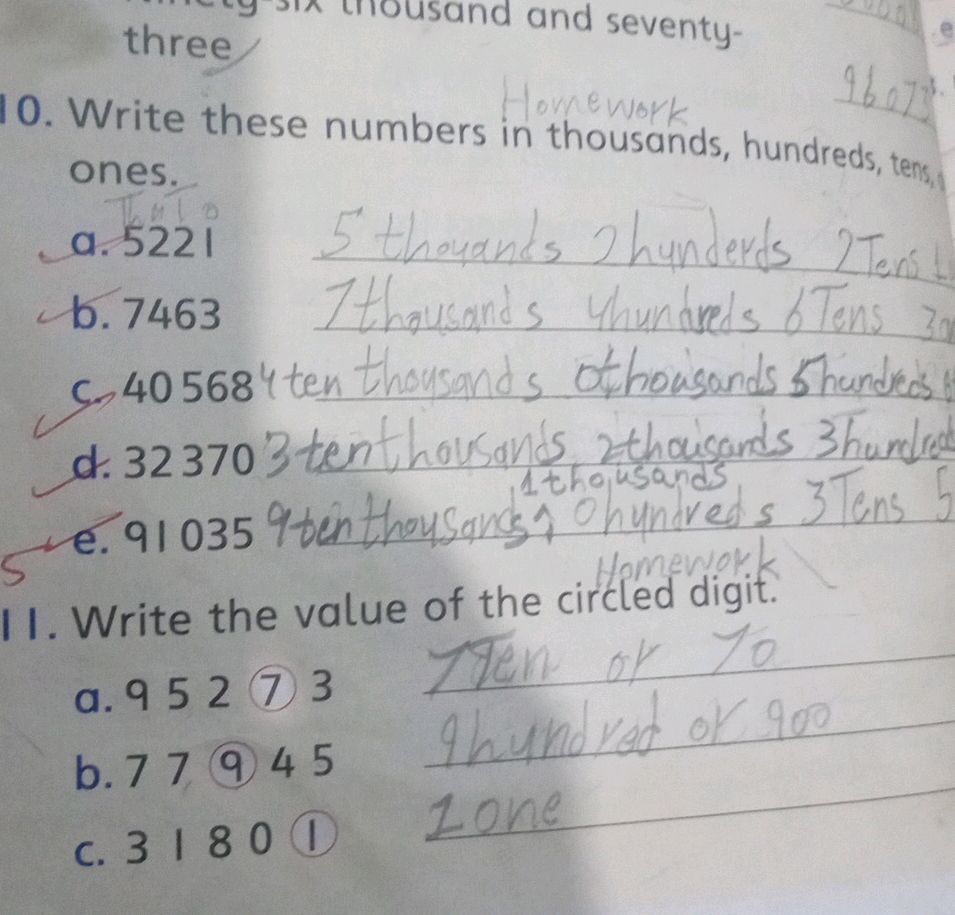 six thousand and seventy-
three
96 073
Homework
10. Write these numbers in thousands, hundreds, tens,
ones.
Th H T O
a. 5221 5 thouands 2 hunderds 2 Tens 1
b. 7463 7 thousands 4 hundreds 6 Tens 3
c. 40 568 4 ten thousands 0 thousands 5 hundreds
d. 32 370 3 ten thousands 2 thousands 3 hundred
1 thousands
e. 91 035 9 ten thousands 0 hundreds 3 Tens 5
5
Homework
11. Write the value of the circled digit.
a. 9 5 2 7 3 7 Ten or 70
b. 7 7 9 4 5 9 hundred or 900
c. 3 1 8 0 1 1 one